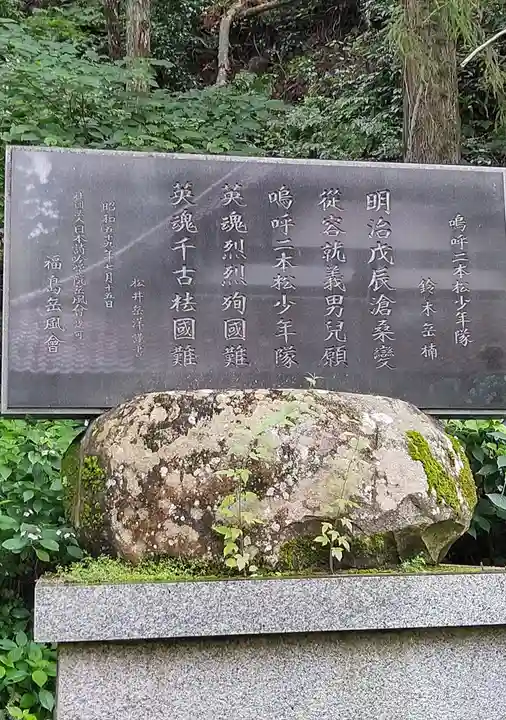 嗚呼二本松少年隊
鈴木岳楠
明治戊辰滄桑變
從容就義男兒願
嗚呼二本松少年隊
英魂烈烈殉國難
英魂千古祛國難
松井岳洋謹書
昭和五十九年七月十五日
福島岳風會